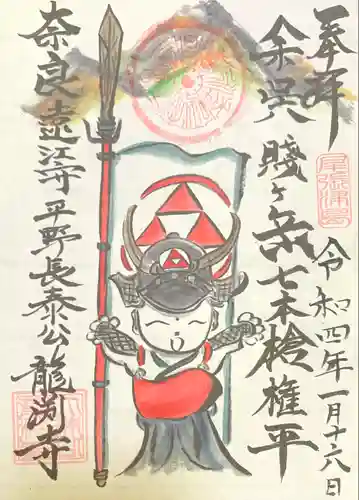 奉拝
令和四年一月十六日
余呉
賤ヶ岳七本槍権平
尾張津島
奈良遠江守平野長泰公
龍渕寺